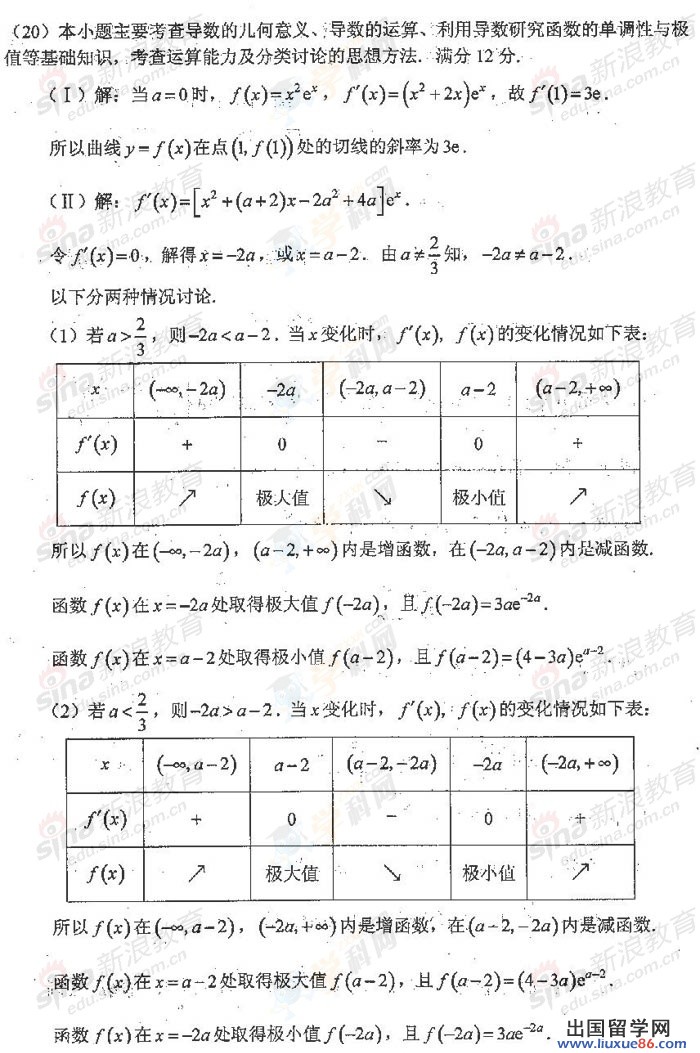 （20）本小题主要考查导数的几何意义、导数的运算、利用导数研究函数的单调性与极
值等基础知识，考查运算能力及分类讨论的思想方法．满分 12 分．
（Ⅰ）解：当 a=0 时，f(x)=x²eˣ，f′(x)=(x²+2x)eˣ，故 f′(1)=3e．
所以曲线 y=f(x) 在点 (1, f(1)) 处的切线的斜率为 3e．
（Ⅱ）解：f′(x)=[x²+(a+2)x−2a²+4a]eˣ．
令 f′(x)=0，解得 x=−2a，或 x=a−2．由 a≠2/3 知，−2a≠a−2．
以下分两种情况讨论．
（1）若 a>2/3，则 −2a<a−2．当 x 变化时，f′(x)，f(x) 的变化情况如下表：
x (−∞,−2a) −2a (−2a,a−2) a−2 (a−2,+∞)
f′(x) + 0 − 0 +
f(x) ↗ 极大值 ↘ 极小值 ↗
所以 f(x) 在 (−∞,−2a)，(a−2,+∞) 内是增函数，在 (−2a,a−2) 内是减函数．
函数 f(x) 在 x=−2a 处取得极大值 f(−2a)，且 f(−2a)=3ae⁻²ᵃ．
函数 f(x) 在 x=a−2 处取得极小值 f(a−2)，且 f(a−2)=(4−3a)eᵃ⁻²．
（2）若 a<2/3，则 −2a>a−2．当 x 变化时，f′(x)，f(x) 的变化情况如下表：
x (−∞,a−2) a−2 (a−2,−2a) −2a (−2a,+∞)
f′(x) + 0 − 0 +
f(x) ↗ 极大值 ↘ 极小值 ↗
所以 f(x) 在 (−∞,a−2)，(−2a,+∞) 内是增函数，在 (a−2,−2a) 内是减函数．
函数 f(x) 在 x=a−2 处取得极大值 f(a−2)，且 f(a−2)=(4−3a)eᵃ⁻²．
函数 f(x) 在 x=−2a 处取得极小值 f(−2a)，且 f(−2a)=3ae⁻²ᵃ．
出国留学网
www.liuxue86.com
sina 新浪教育
edu.sina.com.cn
学科网